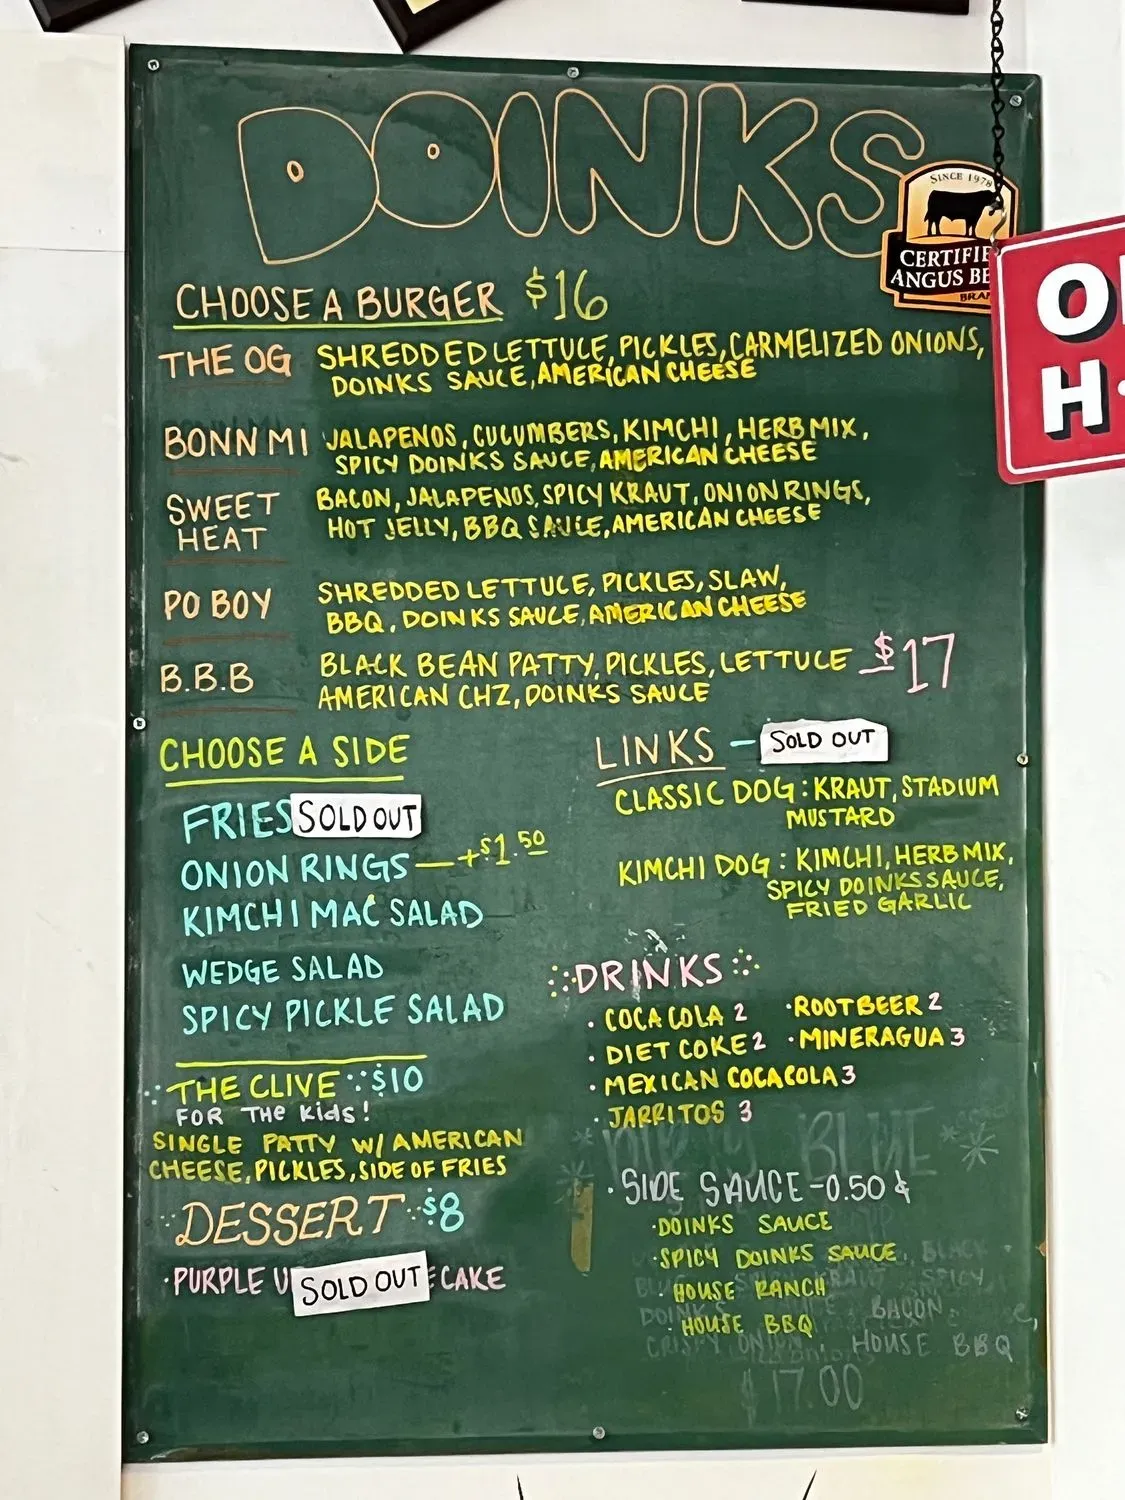 DOINKS
SINCE 1978
CERTIFIE
ANGUS BE
BRAN
O
H
CHOOSE A BURGER $16
THE OG SHREDDED LETTUCE, PICKLES, CARMELIZED ONIONS,
DOINKS SAUCE, AMERICAN CHEESE
BONN MI JALAPENOS, CUCUMBERS, KIMCHI, HERB MIX,
SPICY DOINKS SAUCE, AMERICAN CHEESE
SWEET HEAT BACON, JALAPENOS, SPICY KRAUT, ONION RINGS,
HOT JELLY, BBQ SAUCE, AMERICAN CHEESE
PO BOY SHREDDED LETTUCE, PICKLES, SLAW,
BBQ, DOINKS SAUCE, AMERICAN CHEESE
B.B.B BLACK BEAN PATTY, PICKLES, LETTUCE $17
AMERICAN CHZ, DOINKS SAUCE
CHOOSE A SIDE
FRIES SOLD OUT
ONION RINGS — +$1.50
KIMCHI MAC SALAD
WEDGE SALAD
SPICY PICKLE SALAD
THE CLIVE $10
FOR THE KIDS!
SINGLE PATTY W/ AMERICAN
CHEESE, PICKLES, SIDE OF FRIES
DESSERT $8
·PURPLE U SOLD OUT ECAKE
LINKS – SOLD OUT
CLASSIC DOG: KRAUT, STADIUM
MUSTARD
KIMCHI DOG: KIMCHI, HERB MIX,
SPICY DOINKS SAUCE,
FRIED GARLIC
DRINKS
· COCA COLA 2 · ROOTBEER 2
· DIET COKE 2 · MINERAGUA 3
· MEXICAN COCACOLA 3
· JARRITOS 3
BLUE
· SIDE SAUCE – 0.50 ¢
· DOINKS SAUCE
· SPICY DOINKS SAUCE BLACK
· HOUSE RANCH SPICY
DOINKS BACON
· HOUSE BBQ
CRISPY ONION, HOUSE BBQ
$17.00